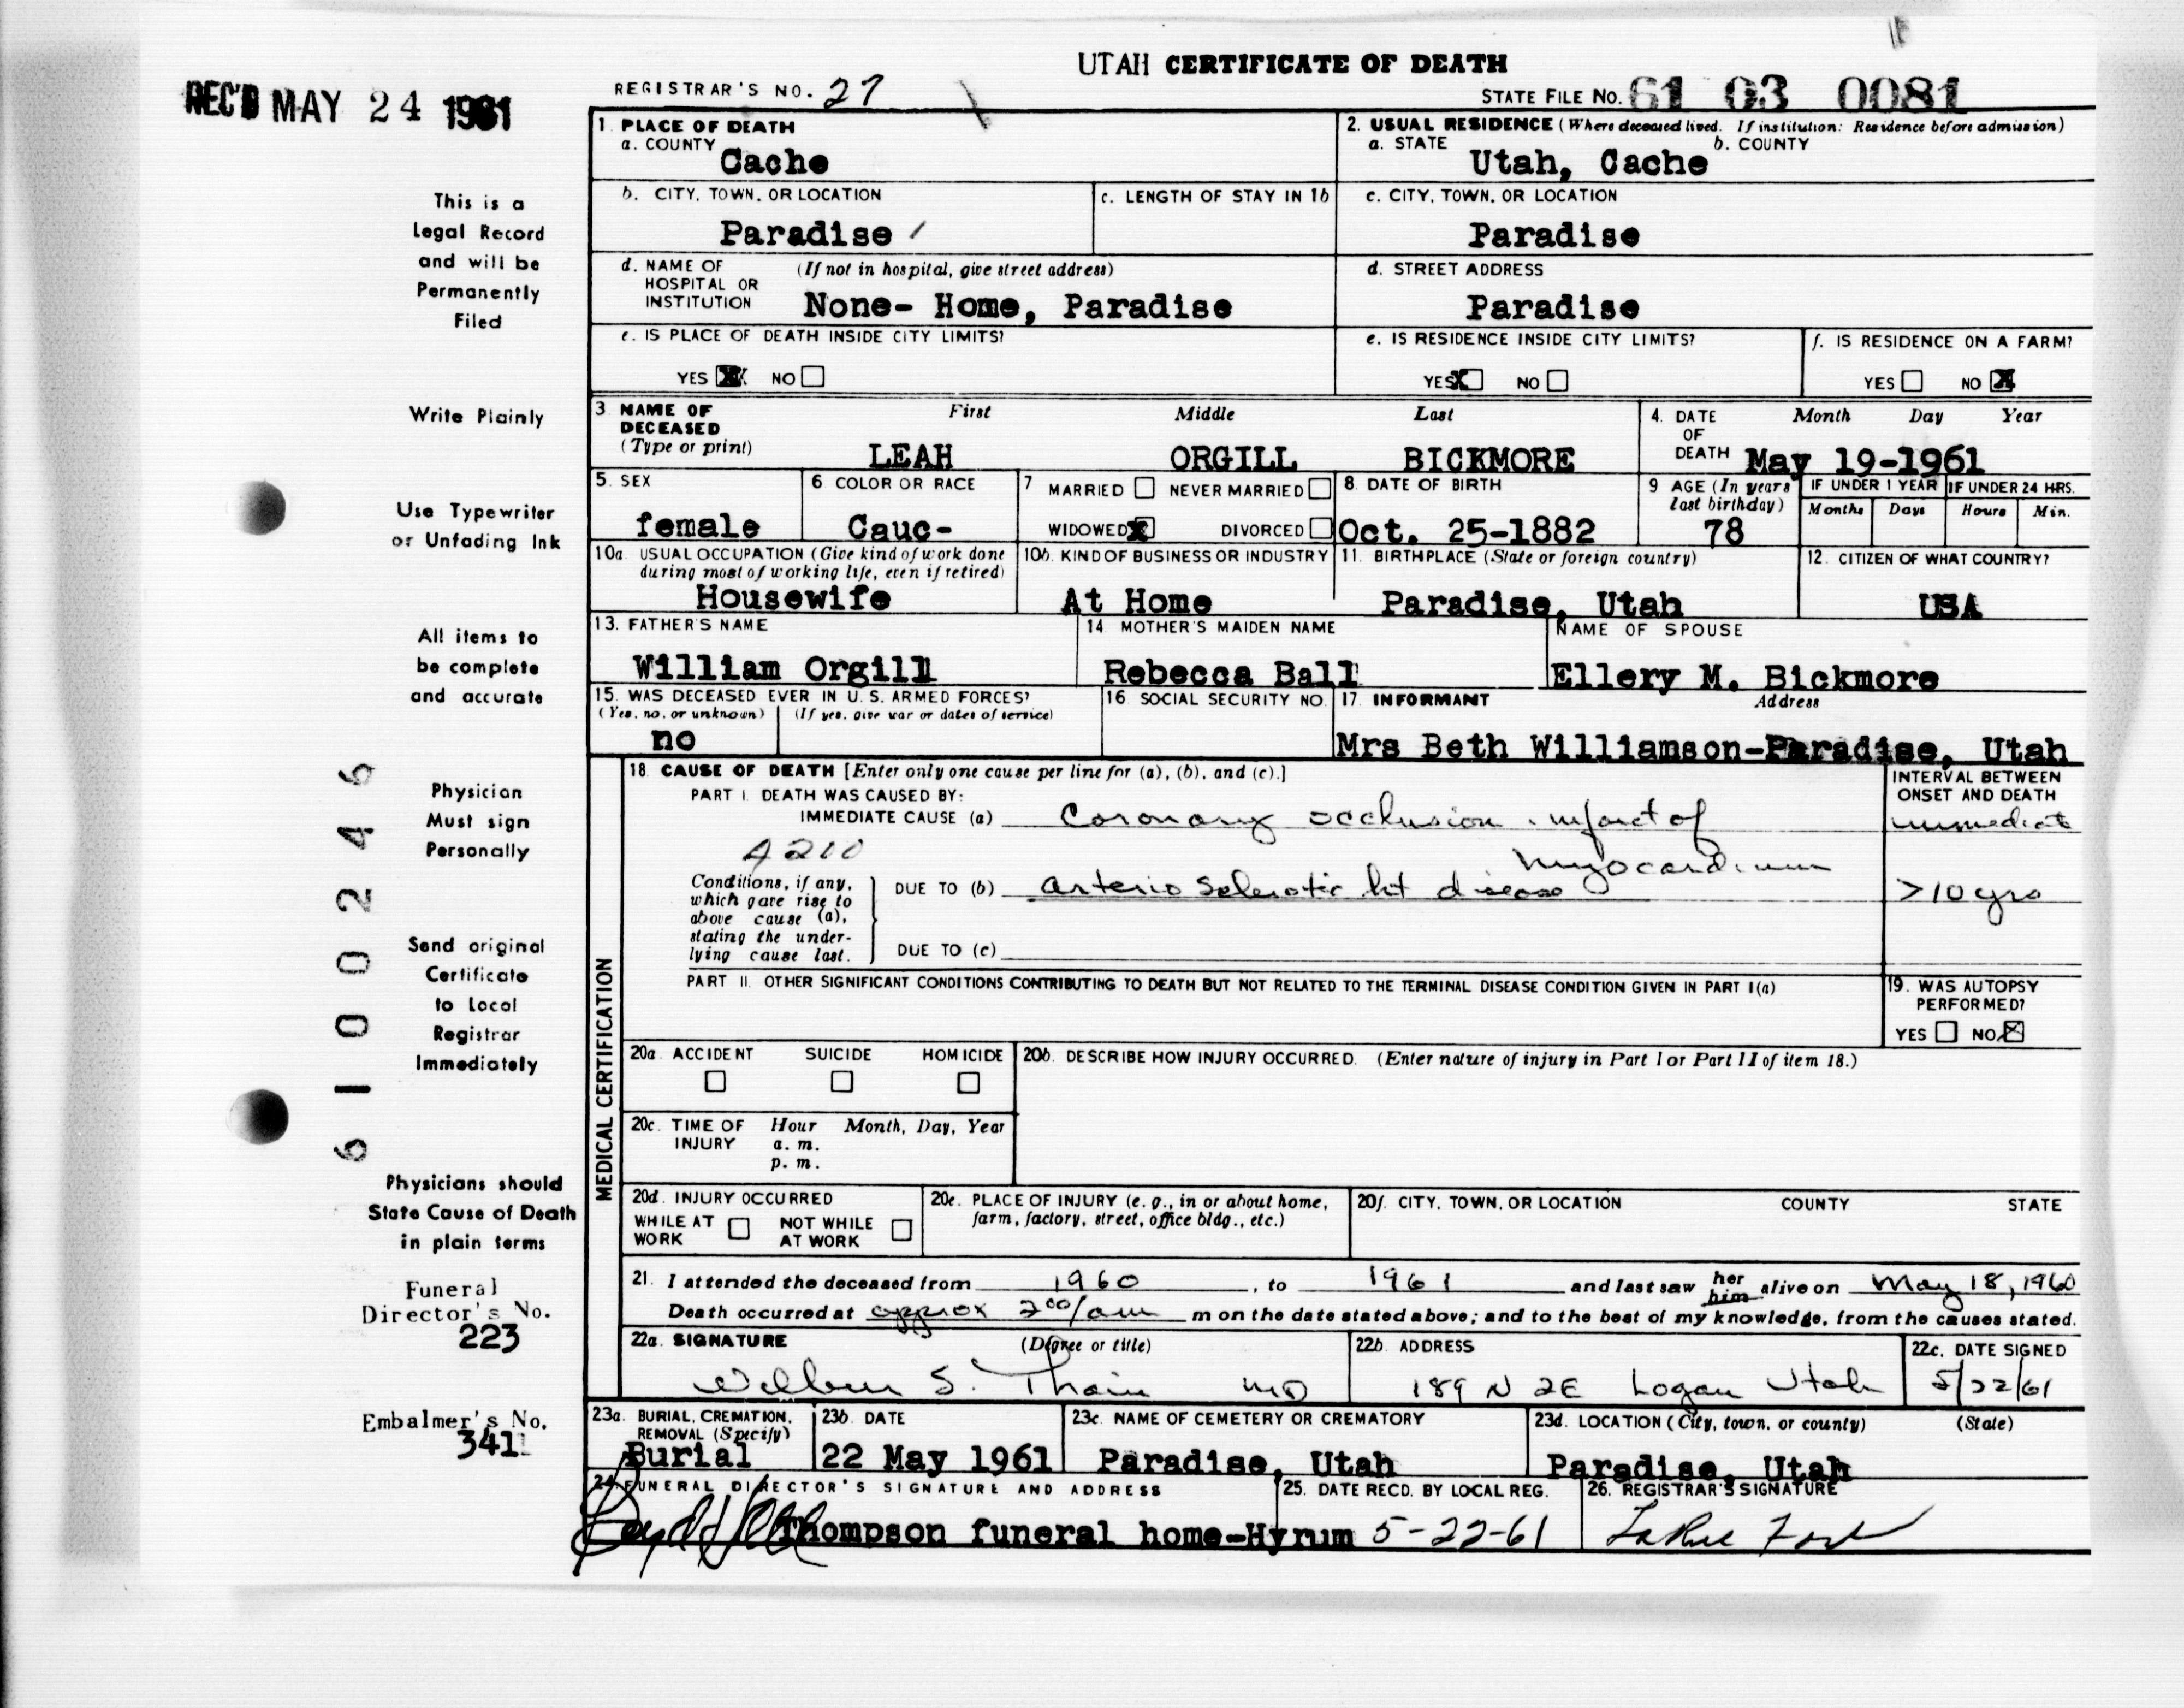 UTAH CERTIFICATE OF DEATH
REC'D MAY 24 1961
REGISTRAR'S NO. 27
STATE FILE NO. 61 03 0081
1. PLACE OF DEATH
a. COUNTY
Cache
2. USUAL RESIDENCE (Where deceased lived. If institution: Residence before admission)
a. STATE b. COUNTY
Utah, Cache
b. CITY, TOWN, OR LOCATION
Paradise
c. LENGTH OF STAY IN 1b
c. CITY, TOWN, OR LOCATION
Paradise
d. NAME OF HOSPITAL OR INSTITUTION (If not in hospital, give street address)
None- Home, Paradise
d. STREET ADDRESS
Paradise
e. IS PLACE OF DEATH INSIDE CITY LIMITS?
YES X NO
e. IS RESIDENCE INSIDE CITY LIMITS?
YES X NO
f. IS RESIDENCE ON A FARM?
YES NO X
3. NAME OF DECEASED (Type or print)
First Middle Last
LEAH ORGILL BICKMORE
4. DATE OF DEATH Month Day Year
May 19-1961
5. SEX
female
6 COLOR OR RACE
Cauc-
7 MARRIED NEVER MARRIED
WIDOWED X DIVORCED
8. DATE OF BIRTH
Oct. 25-1882
9 AGE (In years last birthday)
78
IF UNDER 1 YEAR
Months Days
IF UNDER 24 HRS.
Hours Min.
10a. USUAL OCCUPATION (Give kind of work done during most of working life, even if retired)
Housewife
10b. KIND OF BUSINESS OR INDUSTRY
At Home
11. BIRTHPLACE (State or foreign country)
Paradise, Utah
12. CITIZEN OF WHAT COUNTRY?
USA
13. FATHER'S NAME
William Orgill
14. MOTHER'S MAIDEN NAME
Rebecca Ball
NAME OF SPOUSE
Ellery M. Bickmore
15. WAS DECEASED EVER IN U.S. ARMED FORCES?
(Yes, no, or unknown) (If yes, give war or dates of service)
no
16. SOCIAL SECURITY NO.
17. INFORMANT Address
Mrs Beth Williamson-Paradise, Utah
MEDICAL CERTIFICATION
18. CAUSE OF DEATH [Enter only one cause per line for (a), (b), and (c).]
PART I. DEATH WAS CAUSED BY:
IMMEDIATE CAUSE (a) Coronary occlusion infarct of
myocardium
INTERVAL BETWEEN ONSET AND DEATH
immediate
4210
Conditions, if any, which gave rise to above cause (a), stating the underlying cause last.
DUE TO (b) arterio Sclerotic ht disease
>10 yrs
DUE TO (c)
PART II. OTHER SIGNIFICANT CONDITIONS CONTRIBUTING TO DEATH BUT NOT RELATED TO THE TERMINAL DISEASE CONDITION GIVEN IN PART I(a)
19. WAS AUTOPSY PERFORMED?
YES NO X
20a. ACCIDENT SUICIDE HOMICIDE
20b. DESCRIBE HOW INJURY OCCURRED. (Enter nature of injury in Part I or Part II of item 18.)
20c. TIME OF INJURY Hour Month, Day, Year
a. m.
p. m.
20d. INJURY OCCURRED
WHILE AT WORK NOT WHILE AT WORK
20e. PLACE OF INJURY (e. g., in or about home, farm, factory, street, office bldg., etc.)
20f. CITY, TOWN, OR LOCATION COUNTY STATE
21. I attended the deceased from 1960, to 1961 and last saw her him alive on May 18, 1960
Death occurred at approx 2 00/am m on the date stated above; and to the best of my knowledge, from the causes stated.
22a. SIGNATURE (Degree or title)
Wilbur S. Thain MD
22b. ADDRESS
189 N 2E Logan Utah
22c. DATE SIGNED
5/22/61
23a. BURIAL, CREMATION, REMOVAL (Specify)
Burial
23b. DATE
22 May 1961
23c. NAME OF CEMETERY OR CREMATORY
Paradise, Utah
23d. LOCATION (City, town, or county) (State)
Paradise, Utah
24. FUNERAL DIRECTOR'S SIGNATURE AND ADDRESS
Thompson funeral home-Hyrum
25. DATE RECD. BY LOCAL REG.
5-22-61
26. REGISTRAR'S SIGNATURE
This is a
Legal Record
and will be
Permanently
Filed
Write Plainly
Use Typewriter
or Unfading Ink
All items to
be complete
and accurate
Physician
Must sign
Personally
Send original
Certificate
to Local
Registrar
Immediately
Physicians should
State Cause of Death
in plain terms
Funeral
Director's No.
223
Embalmer's No.
341
6100246